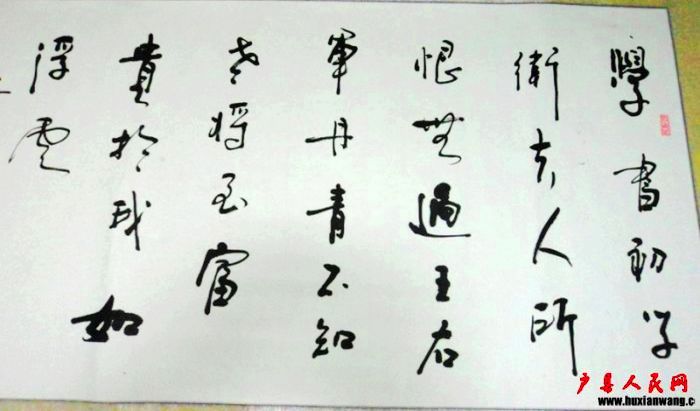 學書初学
衛夫人所
恨無過王右
軍丹青不知
老将至富
貴於我如
浮雲
户县人民网
www.huxianwang.c